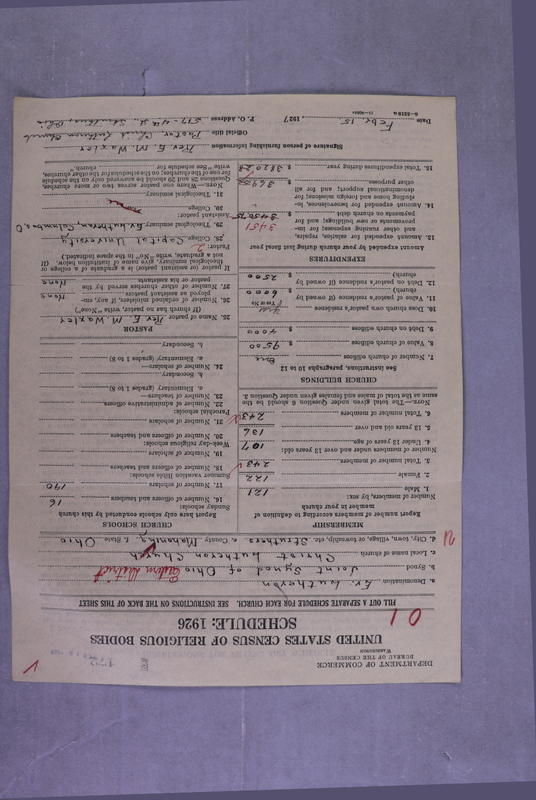 DEPARTMENT OF COMMERCE
BUREAU OF THE CENSUS
WASHINGTON
UNITED STATES CENSUS OF RELIGIOUS BODIES
SCHEDULE: 1926
FILL OUT A SEPARATE SCHEDULE FOR EACH CHURCH. SEE INSTRUCTIONS ON THE BACK OF THIS SHEET
a. Denomination Ev. Lutheran
b. Synod Joint Synod of Ohio Eastern District
c. Local name of church Christ Lutheran Church
d. City, town, village, or township, etc. Struthers e. County Mahoning f. State Ohio
MEMBERSHIP
Report number of members according to definition of member in your church
Number of members, by sex:
1. Male 121
2. Female 122
3. Total number of members 243
Number of members under and over 13 years old:
4. Under 13 years of age 107
5. 13 years old and over 136
6. Total number of members 243
NOTE.—The total given under Question 6 should be the same as the total of males and females given under Question 3.
CHURCH BUILDINGS
See instructions, paragraphs 10 to 12
7. Number of church edifices One
8. Value of church edifices $ 9500
9. Debt on church edifices $ 4000
10. Does church own pastor's residence
11. Value of pastor's residence (if owned by church) $ 6000
12. Debt on pastor's residence (if owned by church) $ 2500
EXPENDITURES
Amount expended by your church during last fiscal year
13. Amount expended for salaries, repairs, and other running expenses; for improvements or new building; and for payments on church debt $ 3451
14. Amount expended for benevolences, including home and foreign missions; for denominational support; and for all other purposes $
15. Total expenditures during year $
CHURCH SCHOOLS
Report here only schools conducted by this church
Sunday schools:
16. Number of officers and teachers 16
17. Number of scholars 190
Summer vacation Bible schools:
18. Number of officers and teachers
19. Number of scholars
Week-day religious schools:
20. Number of officers and teachers
21. Number of scholars
Parochial schools:
22. Number of administrative officers
23. Number of teachers—
a. Elementary (grades 1 to 8)
b. Secondary
24. Number of scholars—
a. Elementary (grades 1 to 8)
b. Secondary
PASTOR
25. Name of pastor Rev. E. M. Waxler
(If church has no pastor, write "None")
26. Number of ordained ministers, if any, employed as assistant pastors None
27. Number of other churches served by the pastor or his assistants None
If pastor (or assistant pastor) is a graduate of a college or theological seminary, give name of institution below. (If not a graduate, write "No" in the space indicated.)
Pastor:
28. College Capital University
29. Theological seminary Ev. Lutheran Columbus O.
Assistant pastor:
30. College
31. Theological seminary
Signature of person furnishing information Rev. E. M. Waxler
Official title Pastor Christ Lutheran Church
Date Feb. 15, 1927 P. O. Address 517-4th St. Struthers, Ohio